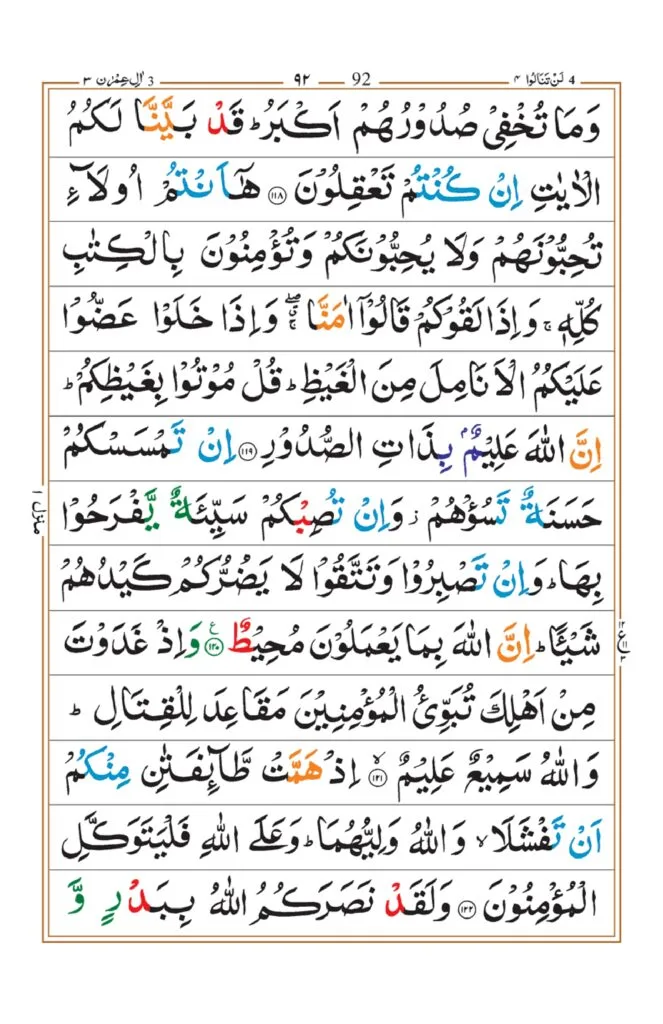 لَنْ تَنَالُوا ۴ 4 92 ۹۲ اٰلِ عِمْرٰن ۳ 3
وَمَا تُخْفِیْ صُدُوْرُهُمْ اَكْبَرُ ؕ قَدْ بَیَّنَّا لَكُمُ
الْاٰیٰتِ اِنْ كُنْتُمْ تَعْقِلُوْنَ ﴿۱۱۸﴾ هٰۤاَنْتُمْ اُولَآءِ
تُحِبُّوْنَهُمْ وَلَا یُحِبُّوْنَكُمْ وَتُؤْمِنُوْنَ بِالْكِتٰبِ
كُلِّهٖ ۚ وَاِذَا لَقُوْكُمْ قَالُوْۤا اٰمَنَّا ۚۖ وَاِذَا خَلَوْا عَضُّوْا
عَلَیْكُمُ الْاَنَامِلَ مِنَ الْغَیْظِ ؕ قُلْ مُوْتُوْا بِغَیْظِكُمْ ؕ
اِنَّ اللّٰهَ عَلِیْمٌۢ بِذَاتِ الصُّدُوْرِ ﴿۱۱۹﴾ اِنْ تَمْسَسْكُمْ
حَسَنَةٌ تَسُؤْهُمْ ؗ وَاِنْ تُصِبْكُمْ سَیِّئَةٌ یَّفْرَحُوْا
منزل ۱
بِهَا ؕ وَاِنْ تَصْبِرُوْا وَتَتَّقُوْا لَا یَضُرُّكُمْ كَیْدُهُمْ
شَیْـًٔا ؕ اِنَّ اللّٰهَ بِمَا یَعْمَلُوْنَ مُحِیْطٌ ﴿۱۲۰﴾ ع وَاِذْ غَدَوْتَ
مِنْ اَهْلِكَ تُبَوِّئُ الْمُؤْمِنِیْنَ مَقَاعِدَ لِلْقِتَالِ ؕ
وَاللّٰهُ سَمِیْعٌ عَلِیْمٌ ﴿۱۲۱﴾ ۙ اِذْ هَمَّتْ طَّآئِفَتٰنِ مِنْكُمْ
اَنْ تَفْشَلَا ۙ وَاللّٰهُ وَلِیُّهُمَا ؕ وَعَلَی اللّٰهِ فَلْیَتَوَكَّلِ
الْمُؤْمِنُوْنَ ﴿۱۲۲﴾ وَلَقَدْ نَصَرَكُمُ اللّٰهُ بِبَدْرٍ وَّ